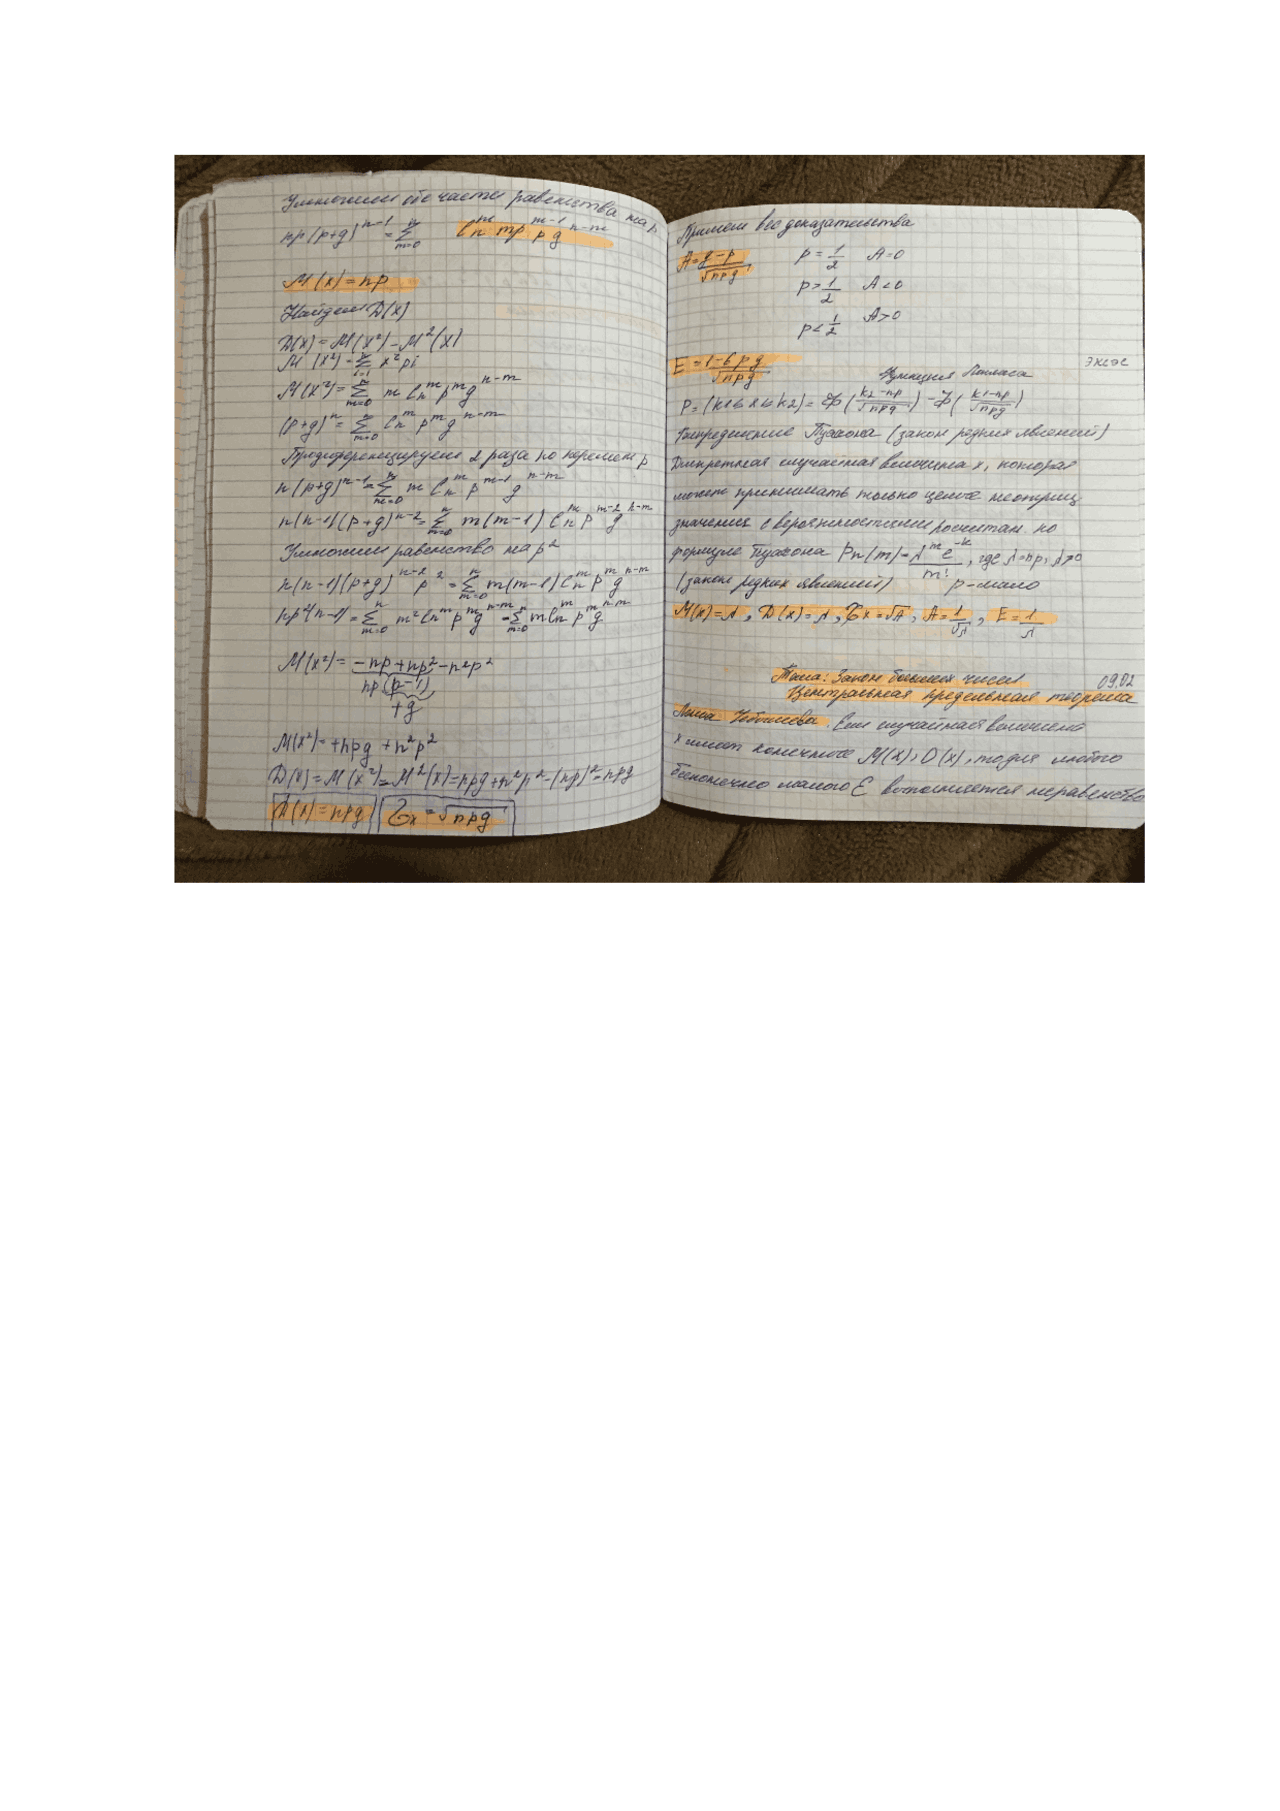 Умножим обе части равенства на p
np(p+g)^{n-1} = Σ_{m=0}^{n} C_n^m mp p^{m-1} g^{n-m}
M(x)=np
Найдем D(x)
D(x)=M(x²)-M²(x)
M(x²)=Σ_{i=1}^{n} x²pi
M(x²)=Σ_{m=0}^{n} m C_n^m p^m g^{n-m}
(p+g)^n=Σ_{m=0}^{n} C_n^m p^m g^{n-m}
Продиференцируем 2 раза по перемен p
n(p+g)^{n-1}=Σ_{m=0}^{n} m C_n^m p^{m-1} g^{n-m}
n(n-1)(p+g)^{n-2}=Σ_{m=0}^{n} m(m-1) C_n^m p^{m-2} g^{n-m}
Умножим равенство на p²
n(n-1)(p+g)^{n-2} p²=Σ_{m=0}^{n} m(m-1) C_n^m p^m g^{n-m}
np²(n-1)=Σ_{m=0}^{n} m² C_n^m p^m g^{n-m} -Σ_{m=0}^{n} m C_n^m p^m g^{n-m}
M(x²)= -np+np²-n²p²
np(p-1)
+g
M(x²)=+npg+n²p²
D(x)=M(x²)-M²(x)=npg+n²p²-(np)²=npg
D(x)=npg σx=√npg
Примем без доказательства
A=g-p/√npg p=1/2 A=0
p>1/2 A<0
p<1/2 A>0
E=1-6pg/√npg эксэс
Функция Лапласа
P=(k1≤x≤k2)=Ф(k2-np/√npg)-Ф(k1-np/√npg)
Распределение Пуассона (закон редких явлений)
Дискретная случайная величина x, которая
может принимать только целые неотриц
значения с вероятностями расчитан. по
формуле Пуассона Pn(m)=λ^m e^{-λ}/m!, где λ=np, λ>0
(закон редких явлений) p-мало
M(x)=λ, D(x)=λ, σx=√λ, A=1/√λ, E=1/λ
Тема: Закон больших чисел 09.02
Центральная предельная теорема
Лемма Чебышева. Если случайная величина
x имеет конечные M(x), D(x), то для любого
бесконечно малого ε выполняется неравенство